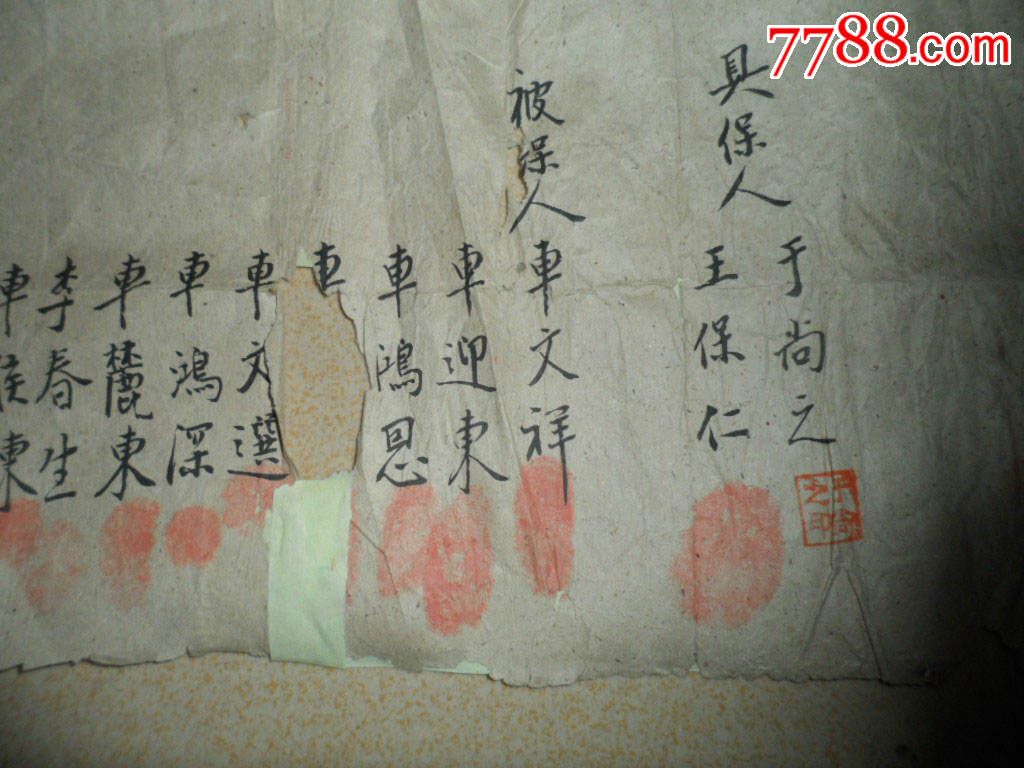 7788.com
具保人 于尚之
王保仁
被保人 車文祥
車迎東
車鴻恩
車
車文選
車鴻深
車麓東
李春生
車 東